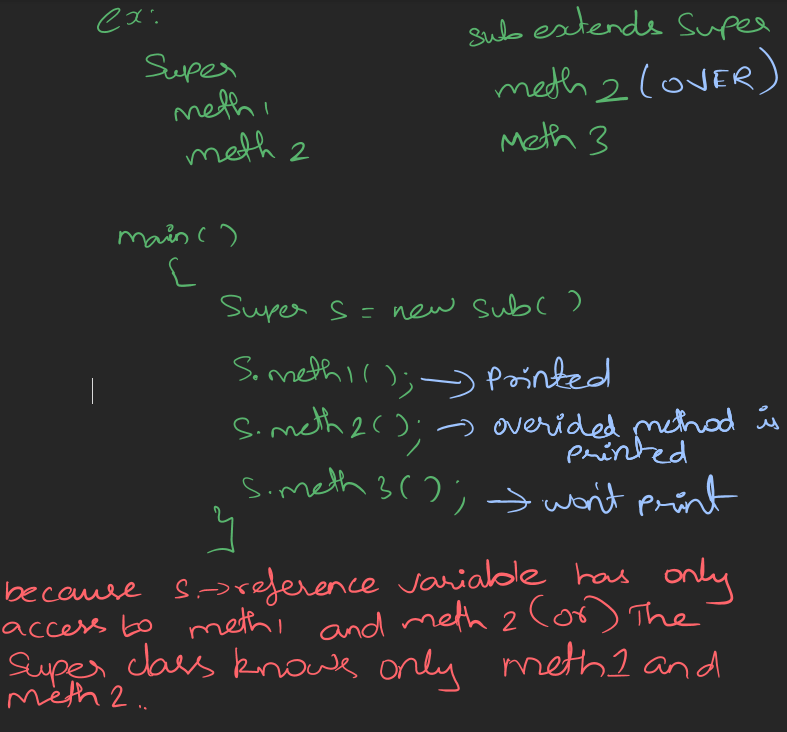 ex:
Super
meth1
meth 2
sub extends Super
meth 2 (OVER)
Meth 3
main()
{
Super s = new sub()
S.meth1(); → printed
S.meth2(); → overided method is
printed
S.meth3(); → won't print
}
because s.→reference variable has only
access to meth1 and meth 2 (or) The
Super class knows only meth1 and
meth2..